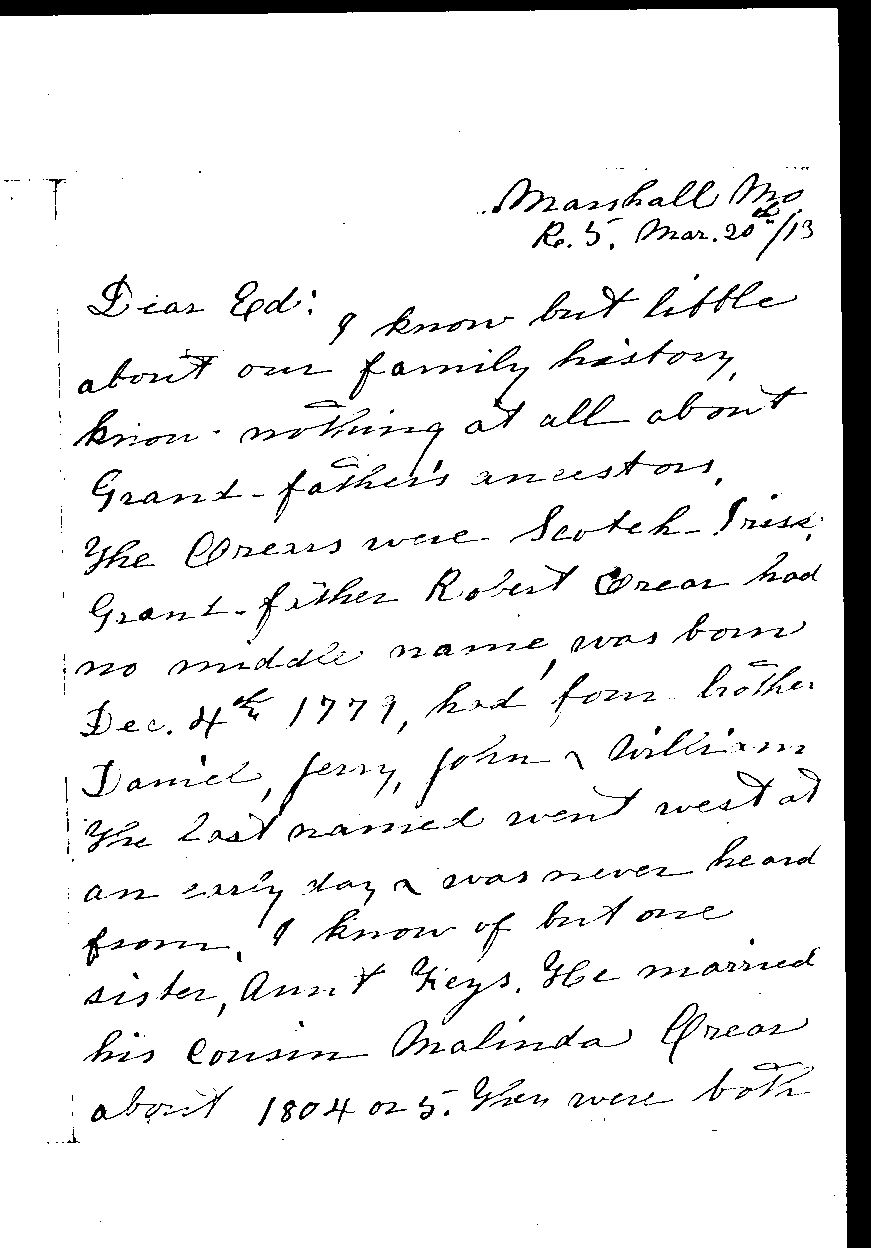 Marshall Mo.
R. 5. Mar. 20th/13
Dear Ed:
I know but little
about our family history,
know nothing at all about
Grand-father's ancestors.
The Orears were Scotch-Irish.
Grand-father Robert Orear had
no middle name, was born
Dec. 4th 1779, had four brother
Daniel, Jerry, John & William
The last named went west at
an early day & was never heard
from. I know of but one
sister, Aunt Keys. He married
his cousin Malinda Orear
about 1804 or 5. They were both